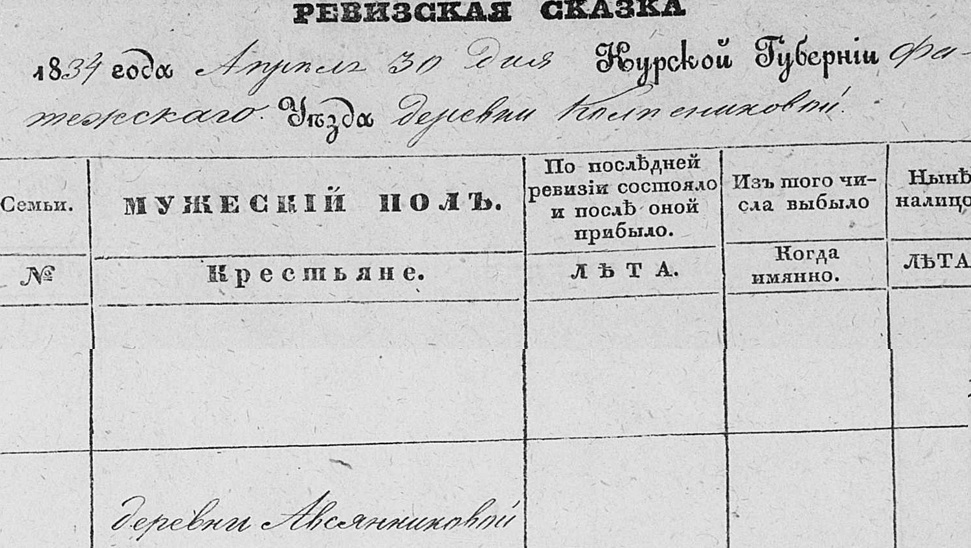 РЕВИЗСКАЯ СКАЗКА
1834 года Апреля 30 дня Курской Губернїи Фа-
тежскаго Уѣзда деревни Колпениковой.
Семьи.
МУЖЕСКІЙ ПОЛЪ.
По послѣдней
ревизіи состояло
и послѣ оной
прибыло.
Изъ того чи-
сла выбыло
Нынѣ
налицо
№
Крестьяне.
ЛѢТА.
Когда
имянно.
ЛѢТА
деревни Авсянниковой